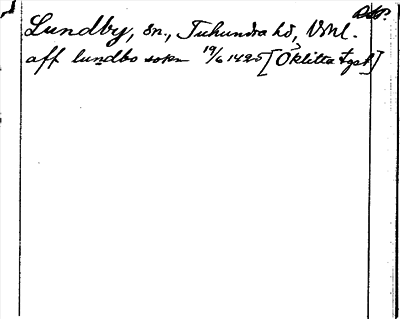 Lundby, sn., Tuhundra hd, Vsml.
aff lundbo sokn 19/6 1425 [Öklitta